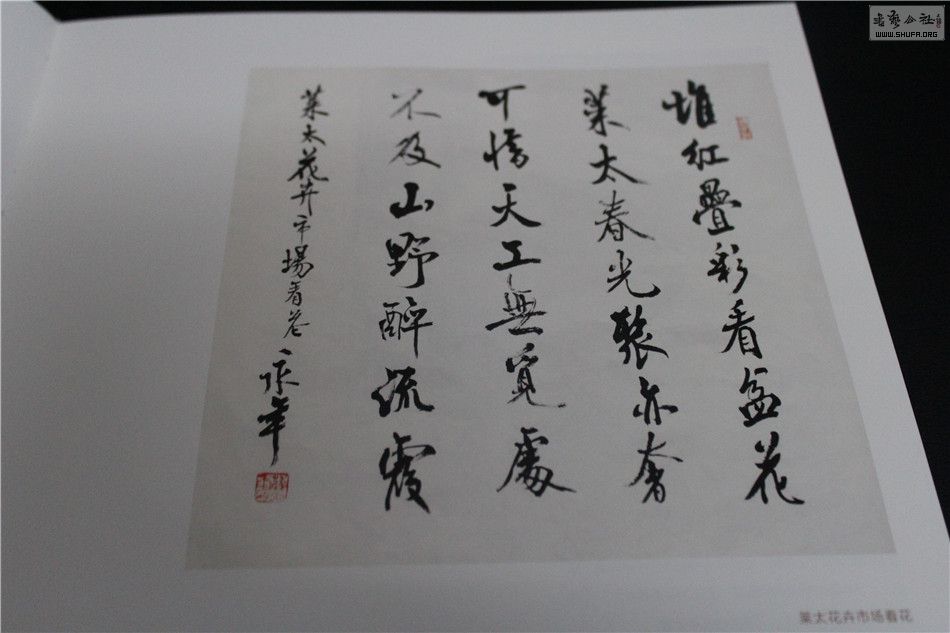 書藝公社
WWW.SHUFA.ORG
堆紅疊彩看盆花
莱太春光亦奢
可惜天工無覓處
不及山野醉流霞
莱太花卉市場看花
莱太花卉市场看花